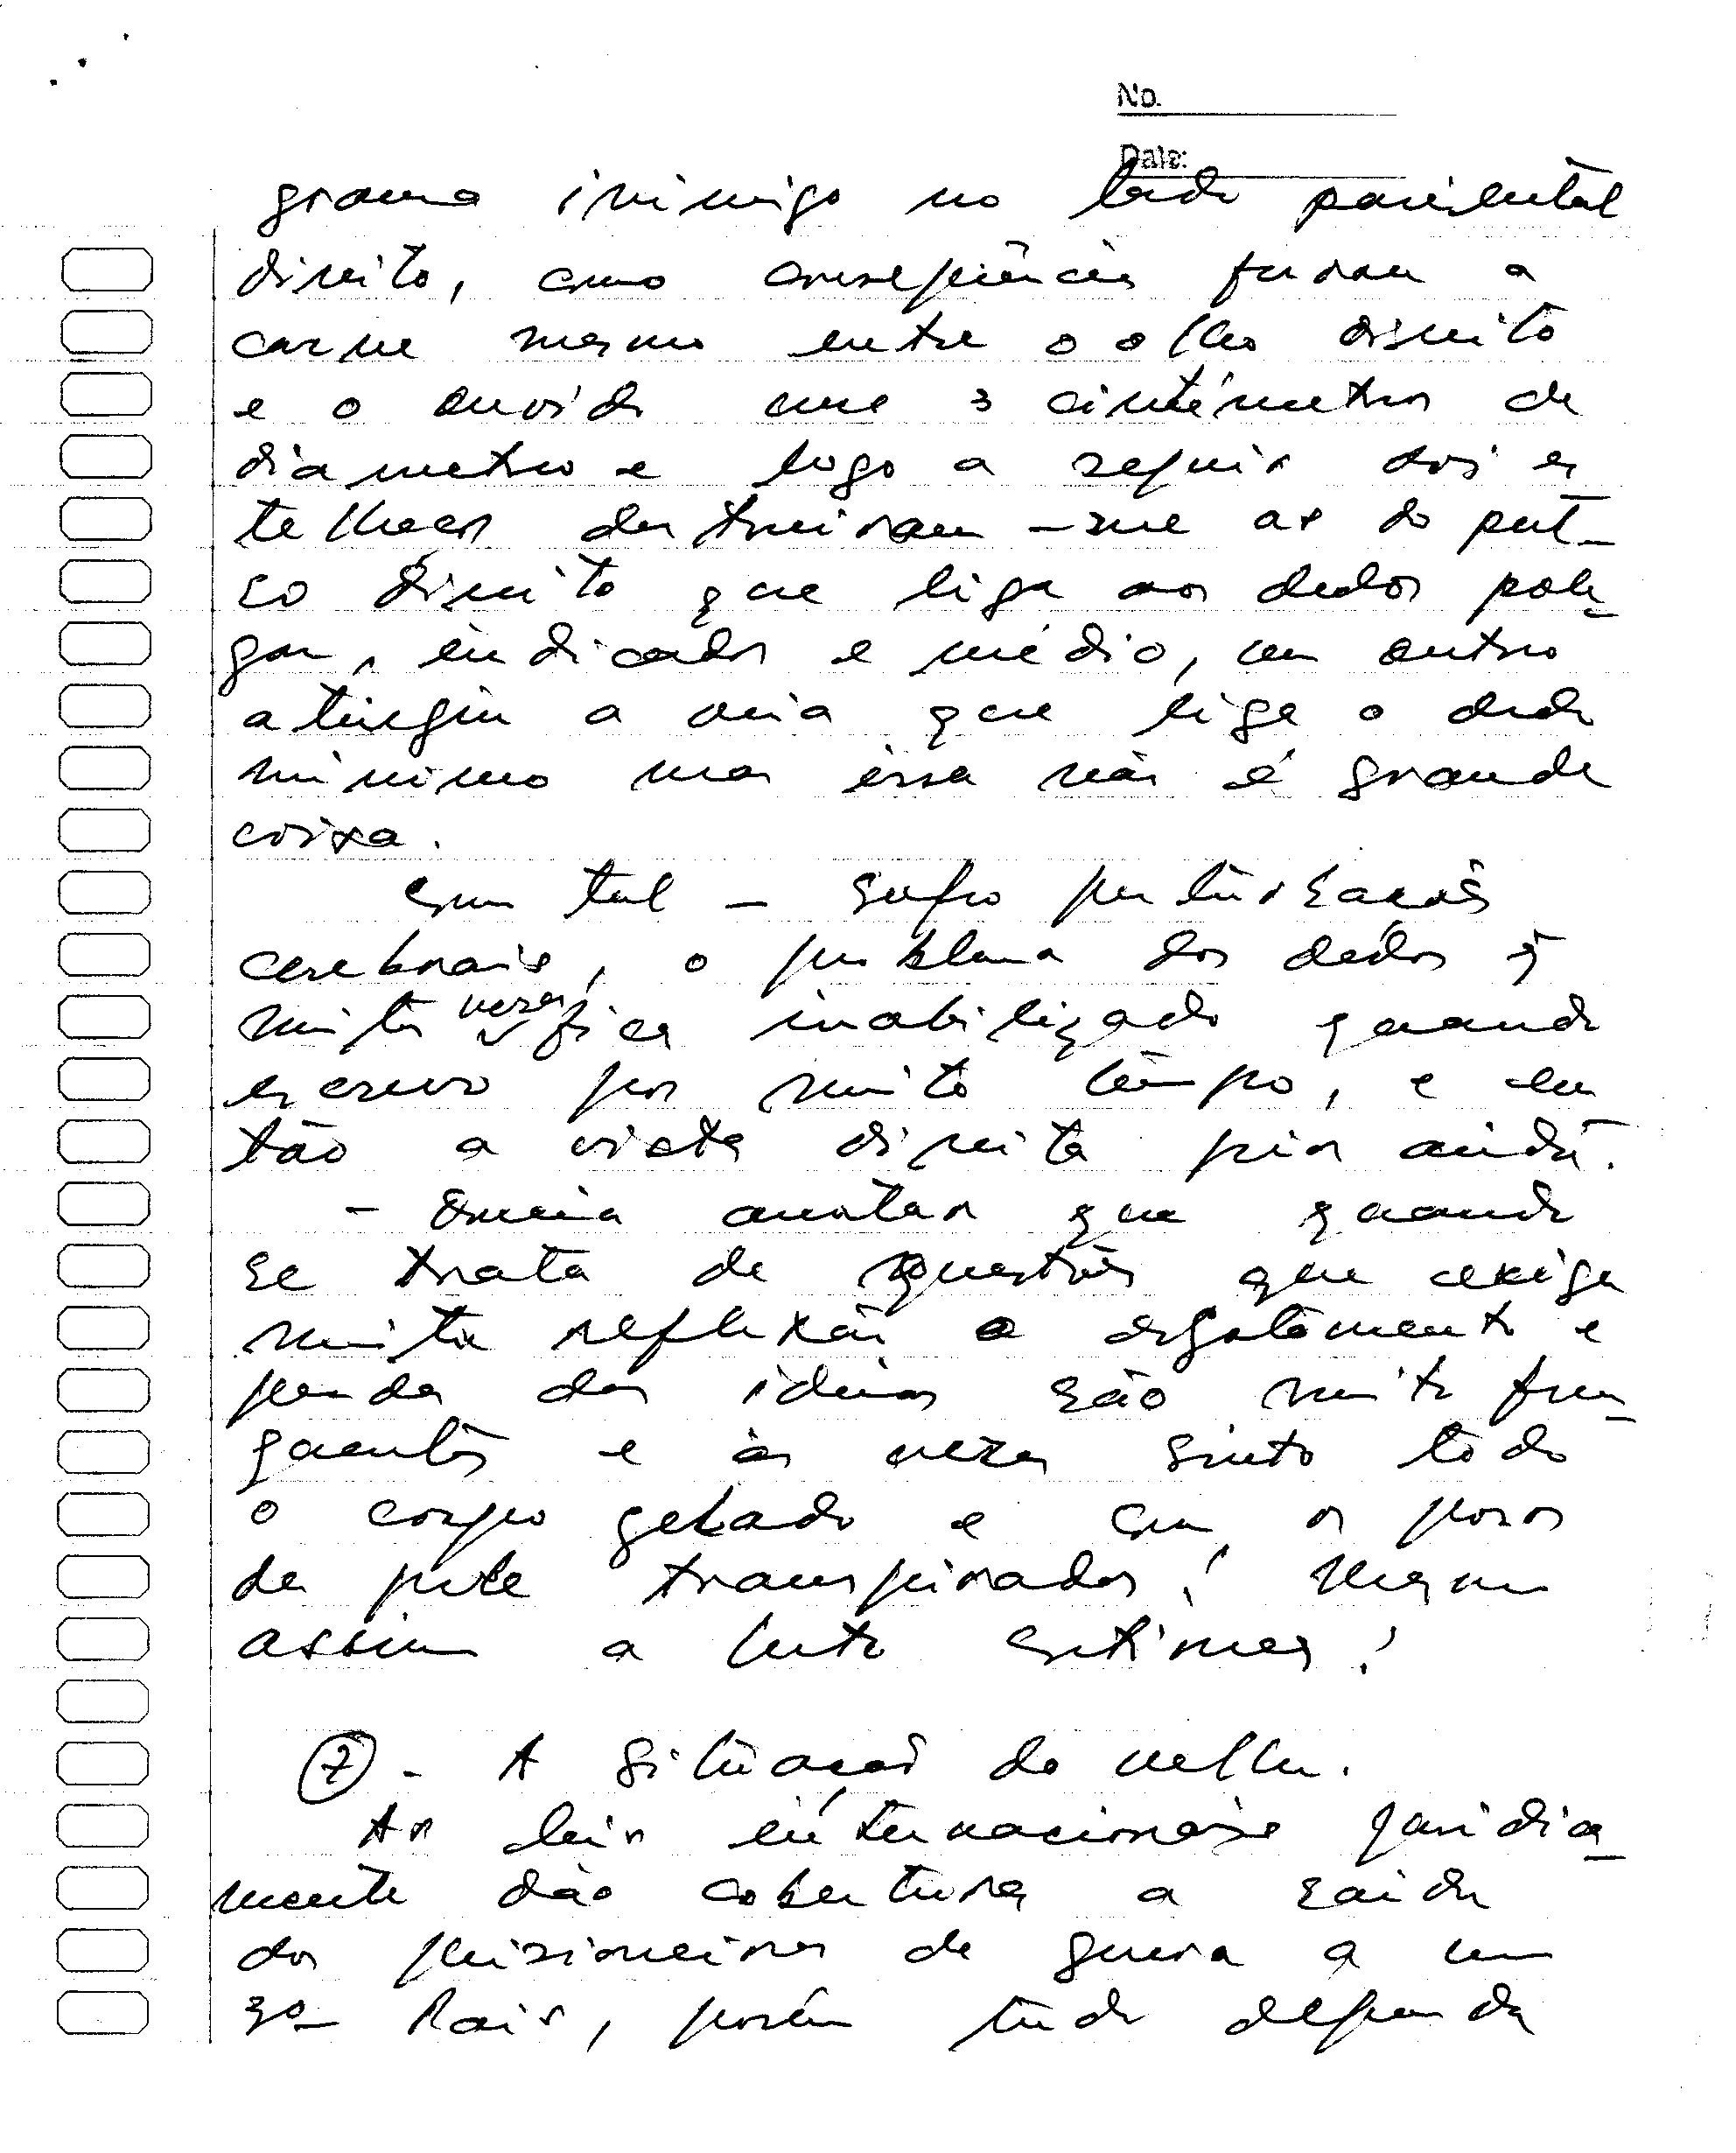 No.
Date:
grama inimigo no lado parietal
direito, como consequência furou a
carne mesmo entre o olho direito
e o ouvido uns 3 cintémetros de
diametro e logo a seguir dois es
telhaços destruiram-me as do pul-
so direito que liga aos dedos pole-
gar, indicador e médio, um outro
atingiu a veia que liga o dedo
minimo mas essa não é grande
coisa.
Com tal - sofro perturbações
cerebrais, o problema dos dedos
muitas vezes fica inabilizado quando
escrevo por muito tempo, e en
tão a vista direita pior ainda.
- Queria anotar que quando
se trata de questões que exige
muita reflexão o esgotamento e
perda das ideias são muito fre-
quentes e às vezes sinto todo
o corpo gelado e com os poros
da pele transpirados! Mesmo
assim a luta continua!
7 - A situação do velho.
As leis internacionais juridica-
mente dão cobertura a saida
dos prisioneiros de guerra a um
3º País, porém tudo depende